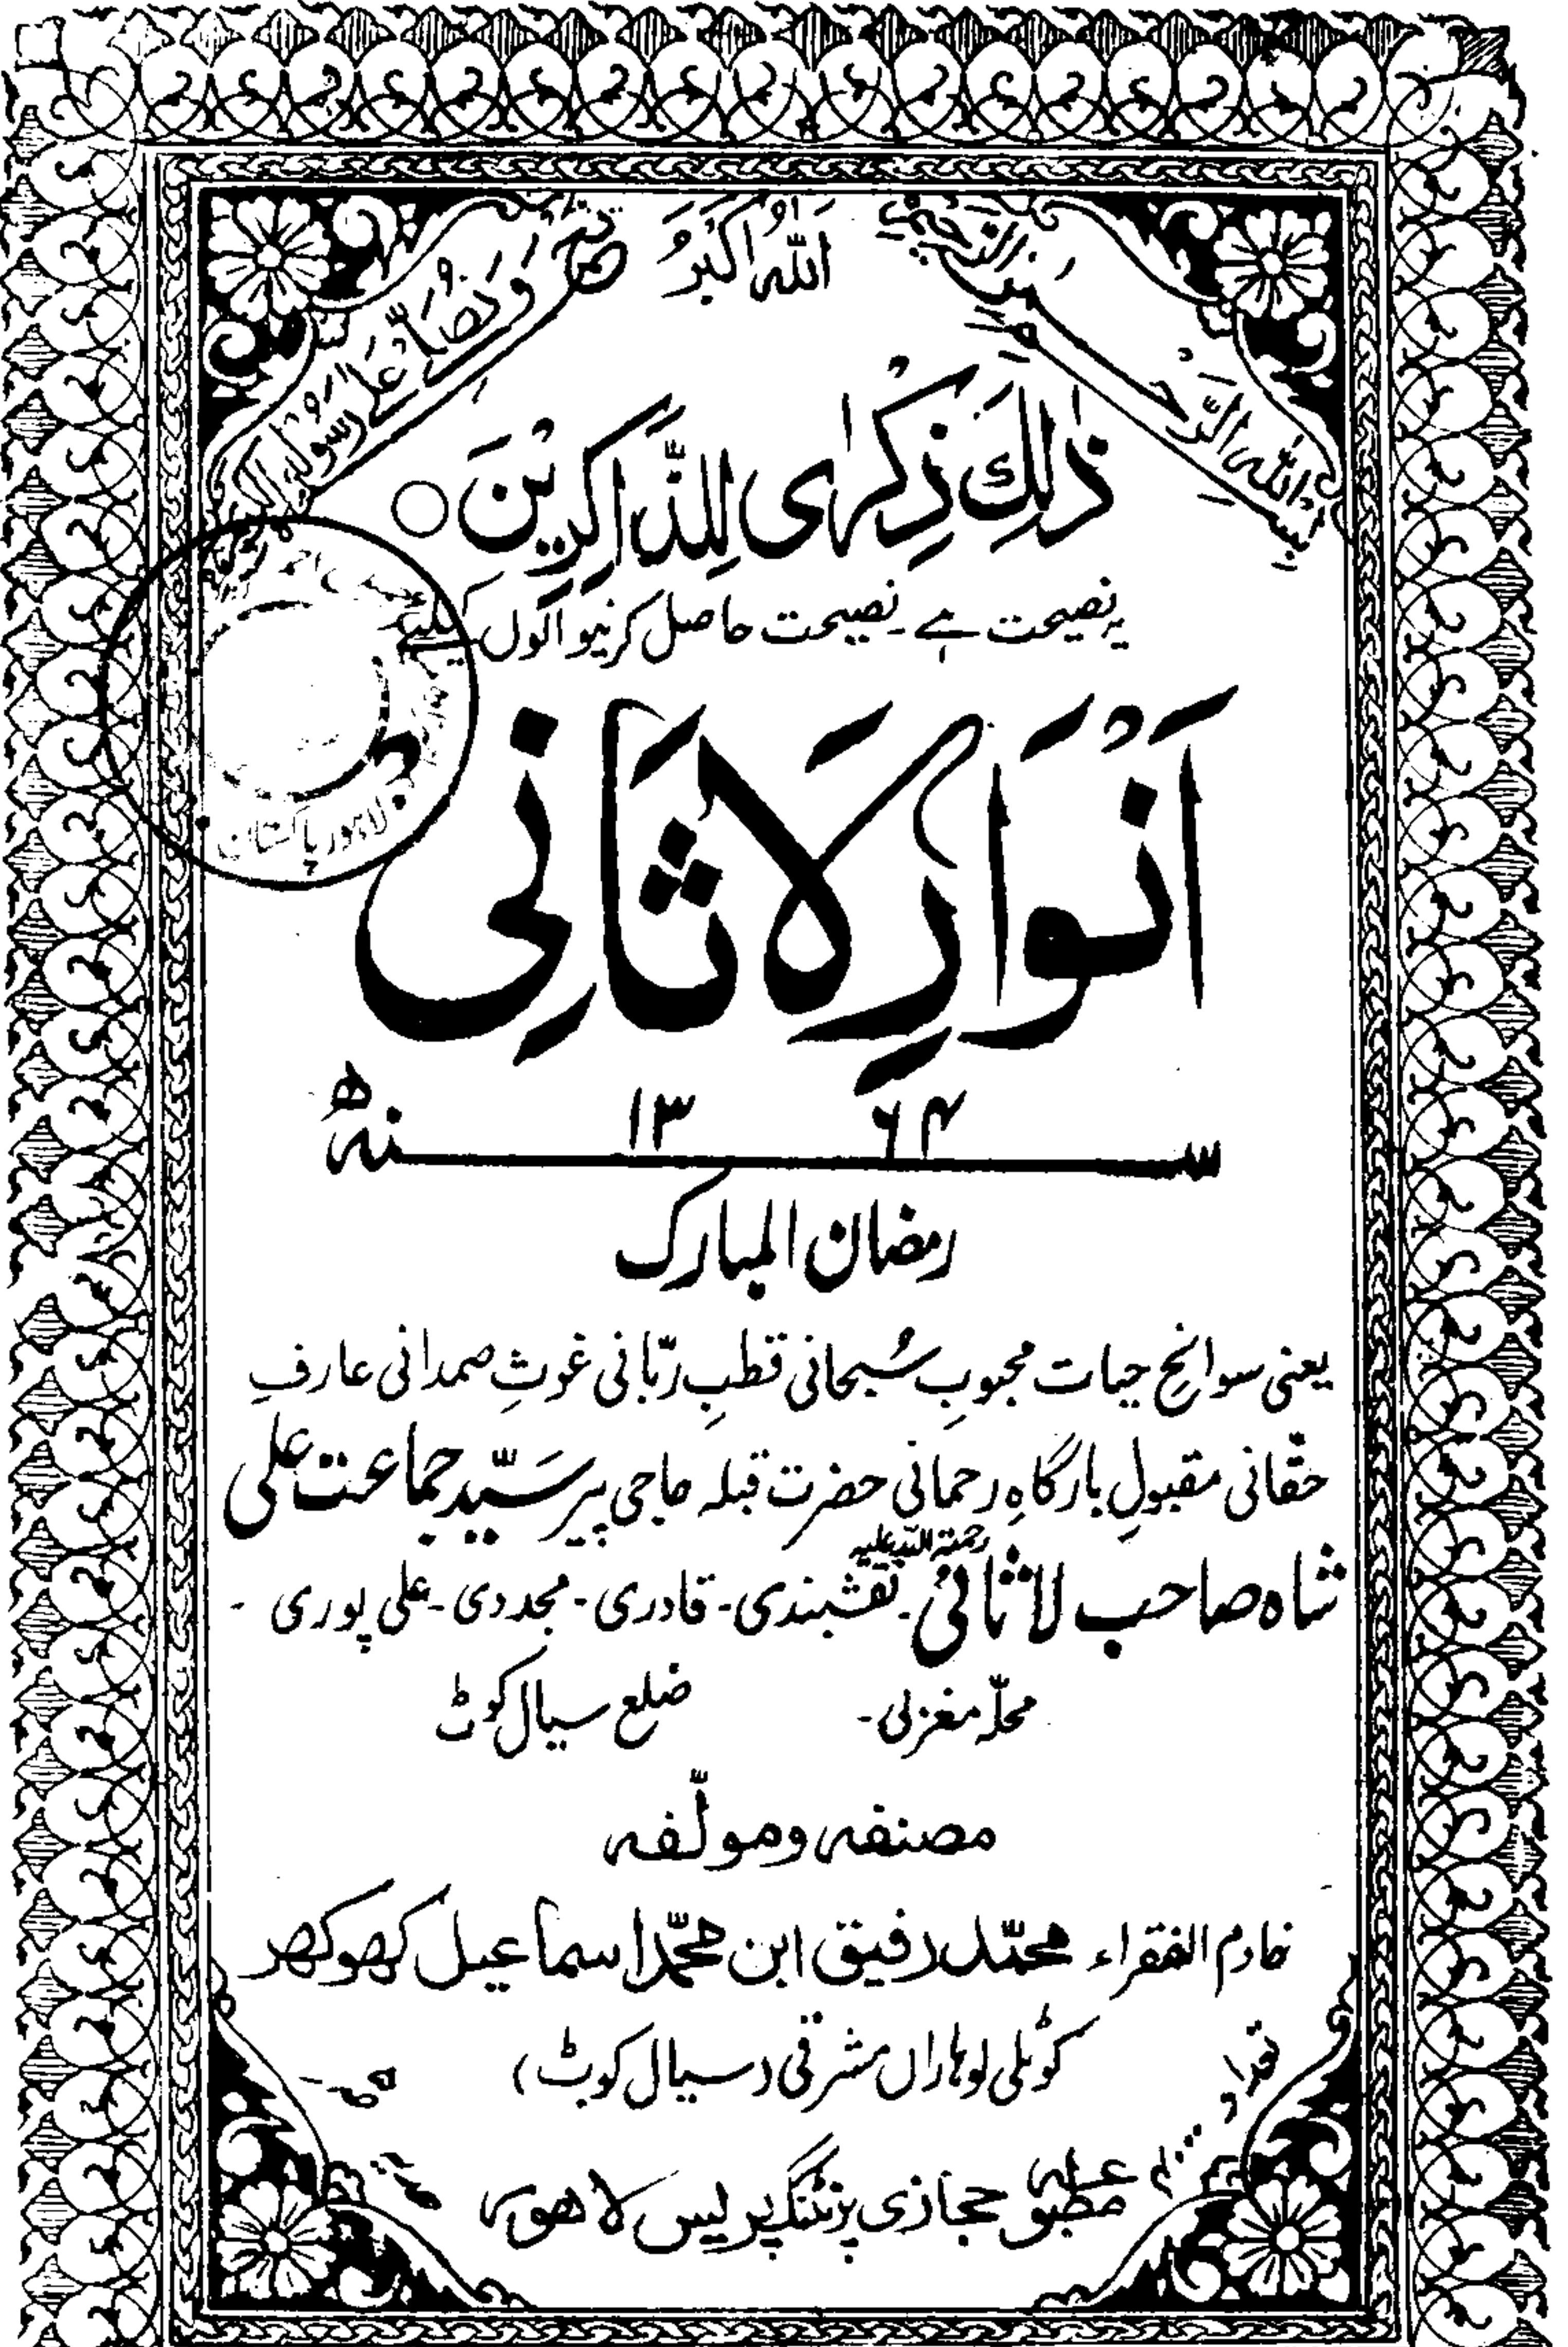 بِسْمِ اللهِ الرَّحْمٰنِ الرَّحِيْمِ
اَللهُ اَكْبَرُ
وَنُصَلِّىْ عَلٰى رَسُوْلِهِ الْكَرِيْمِ
ذٰلِكَ ذِكْرٰى لِلذّٰاكِرِيْنَ ○
یہ نصیحت ہے۔ نصیحت حاصل کرنیوالوں کیلئے
اَنْوَارِ لَاثَانِی
سنہ ۱۳۶۴ھ
رمضان المبارک
یعنی سوانحِ حیات محبوبِ سُبحانی قطبِ ربّانی غوثِ صمدانی عارفِ
حقّانی مقبولِ بارگاہِ رحمانی حضرت قبلہ حاجی پیر سَیّد جماعت علی
شاہ صاحب لاثانیؒ رحمتہ اللہ علیہ ۔ نقشبندی۔ قادری۔ مجددی۔ علی پوری ۔
محلّہ مغربی۔ ضلع سیال کوٹ
مصنفہ و مولّفہ
خادم الفقراء محمّد رفیق ابن محمّد اسماعیل کھوکھر
کوٹلی لوہاراں مشرقی (سیال کوٹ)
تعداد
مطبوعہ حجازی پرنٹنگ پریس لاھور
لاہور پاکستان